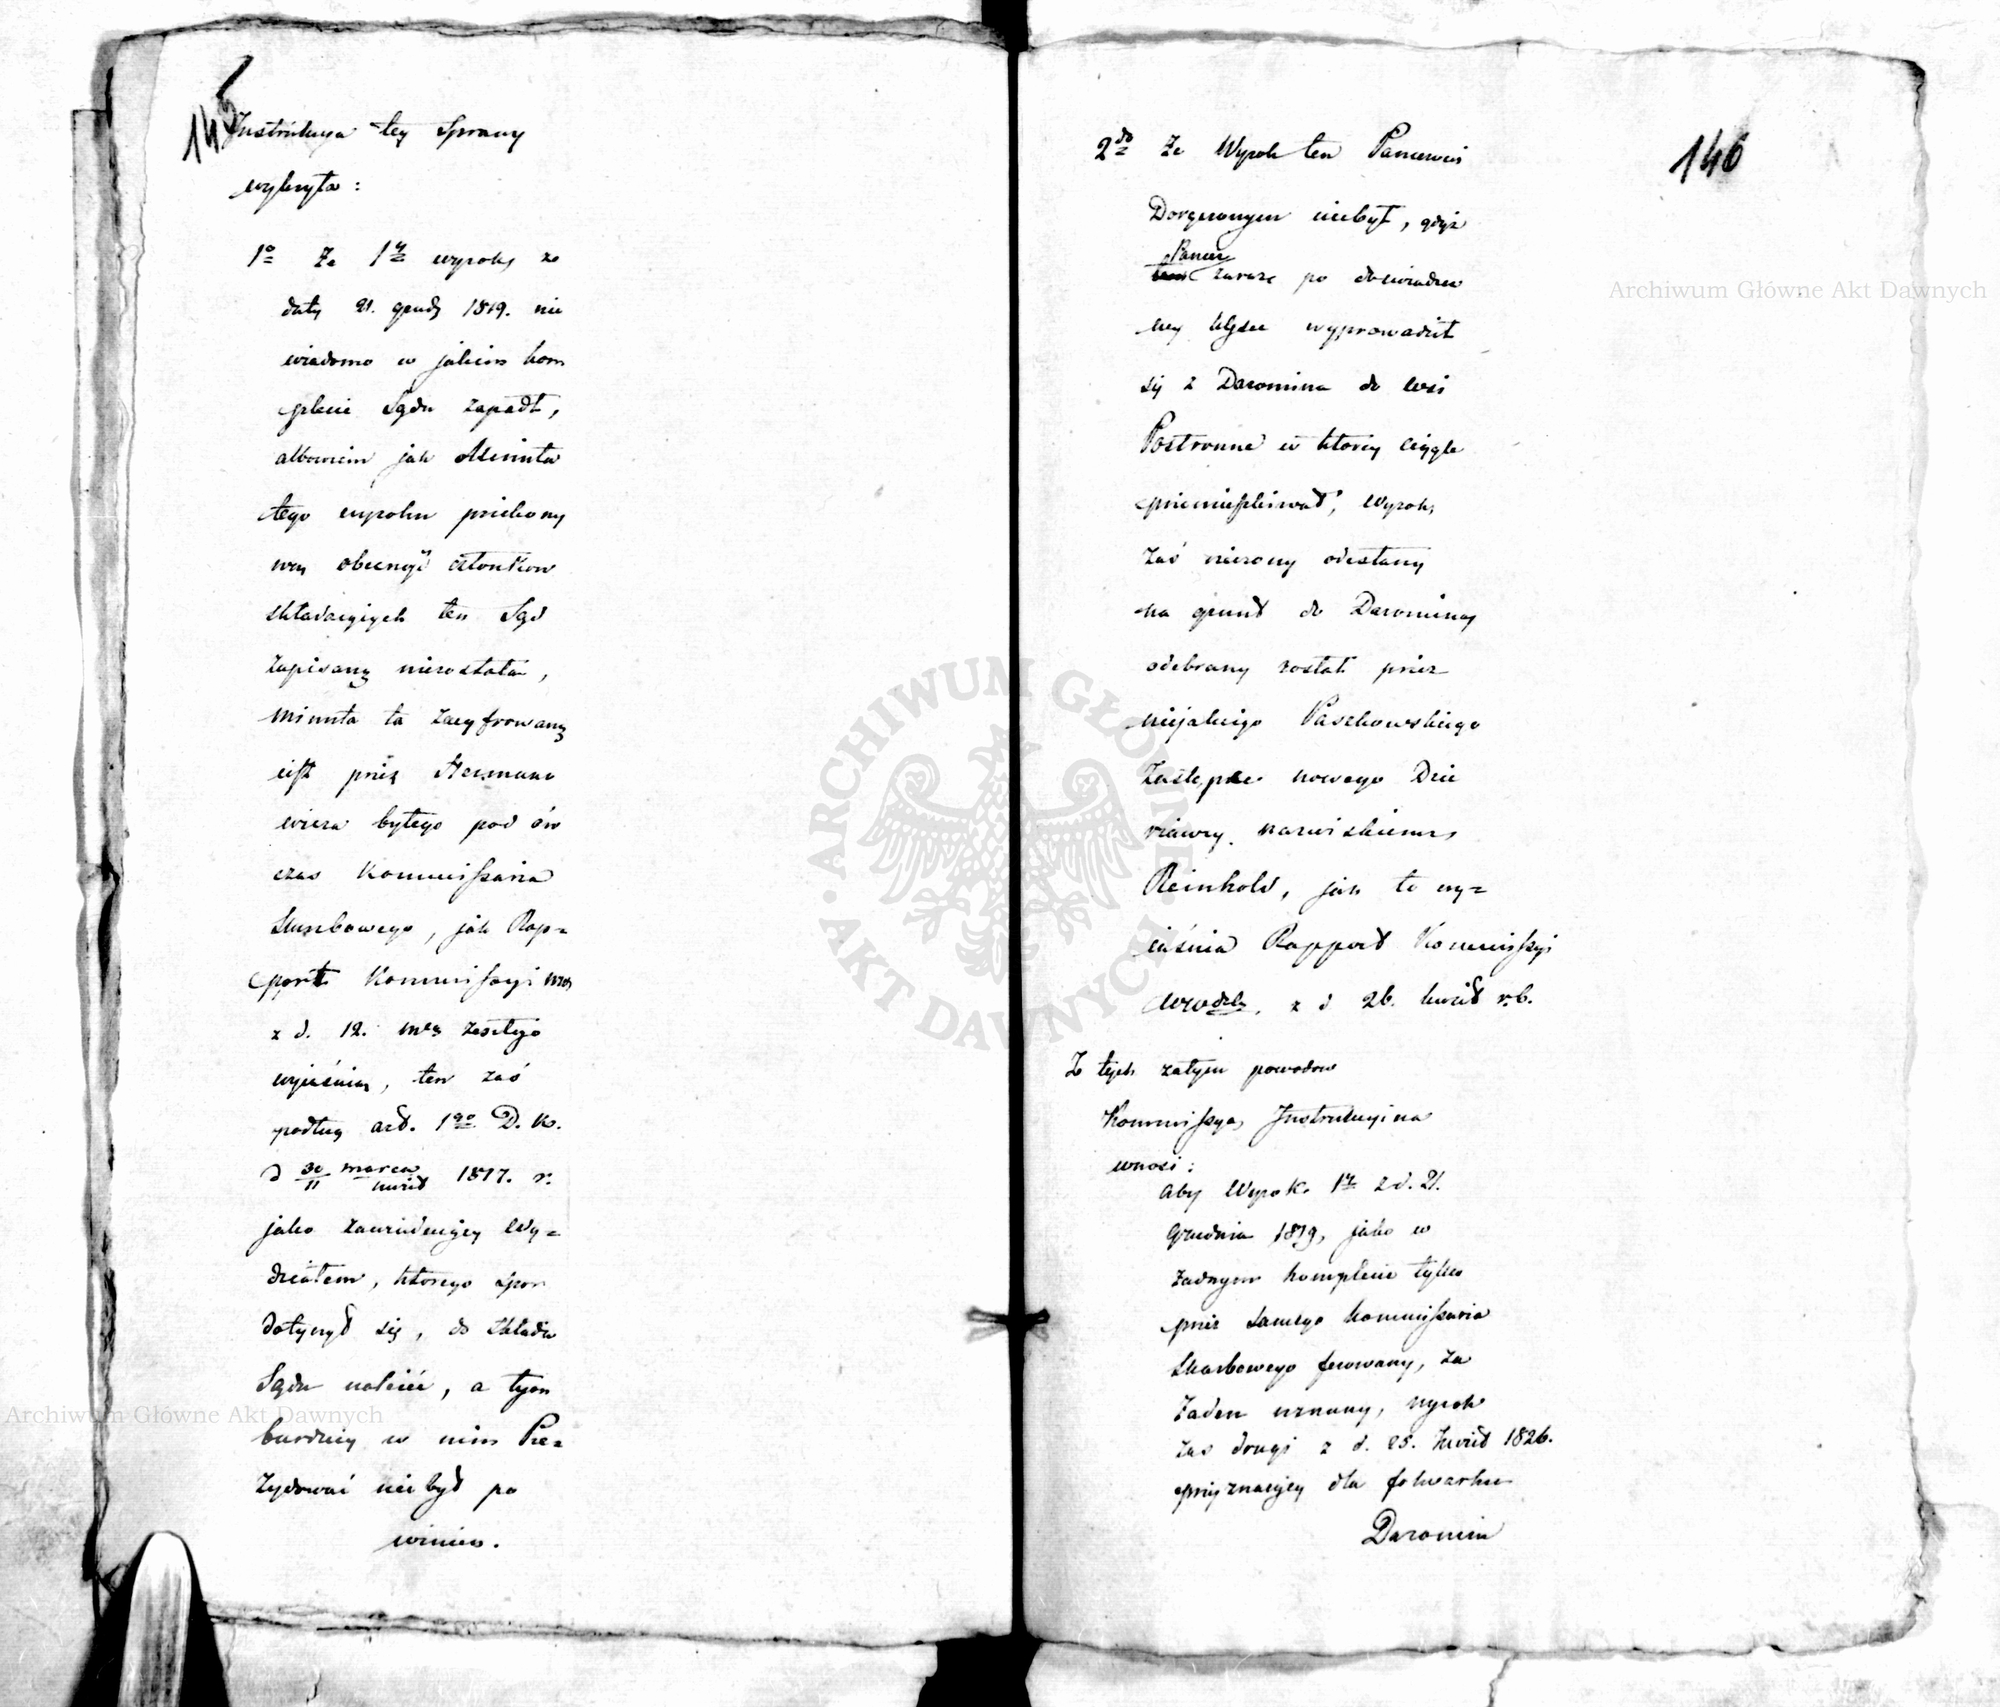 145
Instrukcya tey Sprawy
wykryła:
1o Że 1y wyrok, ze
daty 21. grud. 1819. nie
wiadomo w jakim kom
plecie Sądu zapadł,
albowiem jak Minuta
tego wyroku przekony
wa, obecność członków
składaiących ten Sąd
zapisaną niezostała,
minuta ta zacyfrowaną
iest przez
wicza byłego pod ów
czas Kommissarza
Skarbowego, jak Rap=
port Kommissyi Wdz
z d. 12. mca zeszłego
wyjaśnia, ten zaś
podług art. 1go D. K.
d 30/11 marca/kwiet 1817. r.
jako zawiaduiący Wy=
działem, którego spor
dotyczył się, do składu
Sądu należeć, a tym
bardziey w nim Pre=
zydować nie był po
winien.
146
2do Że Wyrok ten Pancerowi
Doręczonym niebył, gdyż
Pancer
zaraz po doświadczo
ney klęsce wyprowadził
się z Daromina do wsi
Postronne w którey ciągle
pomieszkiwał, Wyrok,
zaś rzeczony odesłany
na grunt do Daromina,
odebrany został przez
niejakiego Paszkowskiego
Zastępce nowego Dzie
rżawcy nazwiskiem,
Reinhold, jak to wy=
iaśnia Rapport Kommissyi
Wwodzkiey, z d 26. kwiet r.b.
Z tych zatym powodow
Kommissya, Instrukcyina
wnosi:
Aby Wyrok 1y z d. 21.
Grudnia 1819, jako w
żadnym komplecie tylko
przez samego Kommissarza
Skarbowego ferowany, za
żaden uznany, wyrok
zas drugi z d. 25. Kwiet 1826.
przyznaiący dla folwarku
Daromin
Archiwum Główne Akt Dawnych
Archiwum Główne Akt Dawnych
ARCHIWUM GŁÓWNE · AKT DAWNYCH ·